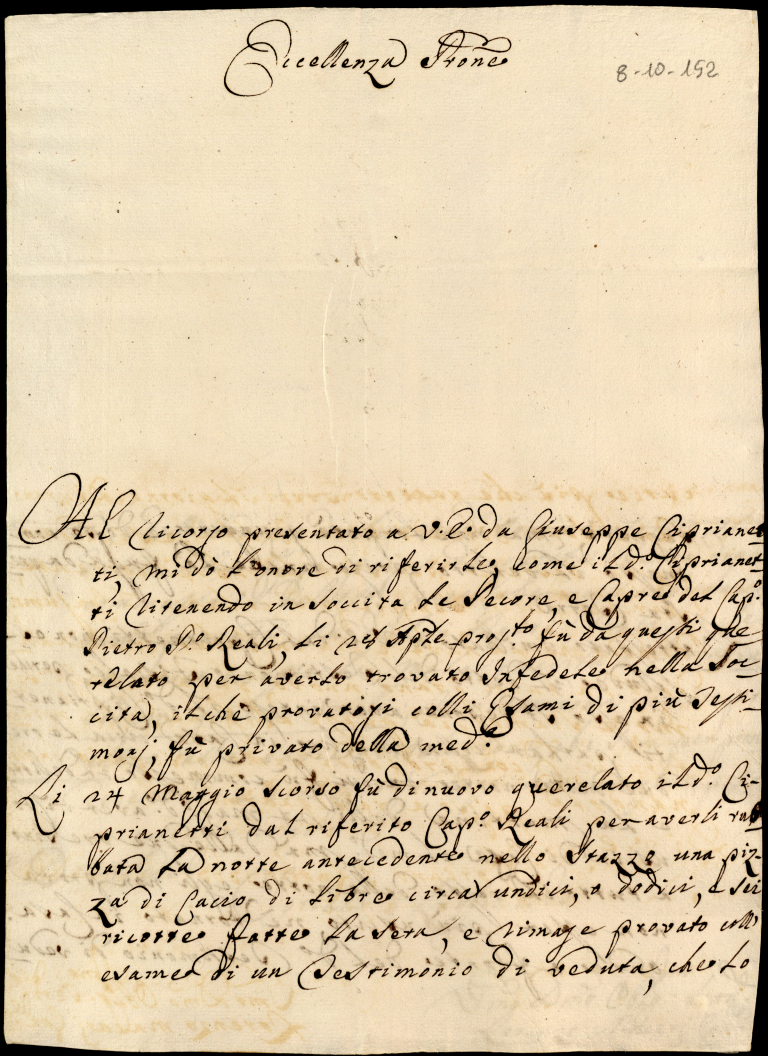 Eccellenza Prone
8-10-152
Al ricorso presentato a V. E. da Giuseppe Ciprianet=
ti, mi dò l'onore di riferirle, come il d.º Ciprianet=
ti ritenendo in soccita le Pecore, e Capre del Cap.º
Pietro P.º Reali, li 28 Aple pross.to fù da questi que=
relato per averlo trovato Infedele nella Soc=
cita, il che provatosi colli Esami di più Testi=
monj, fù privato della med.ª
Li 24 Maggio scorso fù di nuovo querelato il d.º Ci=
prianetti dal riferito Cap.º Reali per averli rub=
bata la notte antecedente nello Stazzo una piz=
za di Cacio di libre circa undici, o dodici, e sei
ricotte fatte la sera, e rimase provato coll'
esame di un Testimonio di veduta, che lo